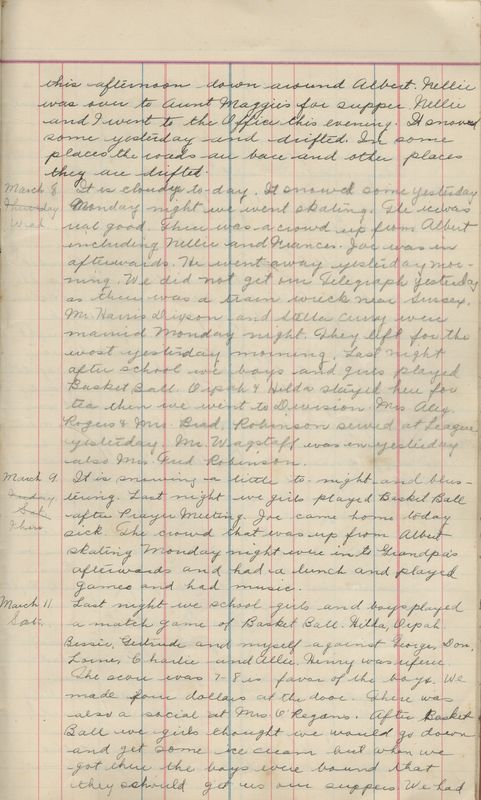 this afternoon down around Albert. Nellie
was over to Aunt Maggie's for supper. Nellie
and I went to the Office this evening. It snowed
some yesterday and drifted. In some
places the roads are bare and other places
they are drifted.
March 8 It is cloudy to-day. It snowed some yesterday
Thursday Monday night we went skating. The ice was
Wed. real good. There was a crowd up from Albert
including Nellie and Frances. Joe was in
afterwards. He went away yesterday mor-
ning. We did not get our Telegraph yesterday
as there was a train wreck near Sussex.
Mr. Harris Dixson and Stella Curry were
married Monday night. They left for the
west yesterday morning. Last night
after school we boys and girls played
Basket Ball. Orpah & Hilda stayed here for
tea then we went to Division. Mrs Alex.
Rogers & Mrs. Brad. Robinson served at League
yesterday. Mr. Wagstaff was in yesterday
also Mrs. Fred Robinson.
March 9. It is snowing a little to-night and blus-
tering. Last night we girls played Basket Ball
Sat. after Prayer Meeting. Joe came home today
Thurs sick. The crowd that was up from Albert
skating Monday night were in to Grandpa's
afterwards and had a lunch and played
games and had music.
March 11 Last night we school girls and boys played
Sat. a match game of Basket Ball. Hilda, Orpah,
Bessie, Gertrude and myself against George, Don,
Lorne, Charlie and Allie. Henry was referee.
The score was 7-8 in favor of the boys. We
made four dollars at the door. There was
also a social at Mrs. O'Regans. After Basket
Ball we girls thought we would go down
and get some ice cream but when we
got there the boys were bound that
they should get us our suppers. We had